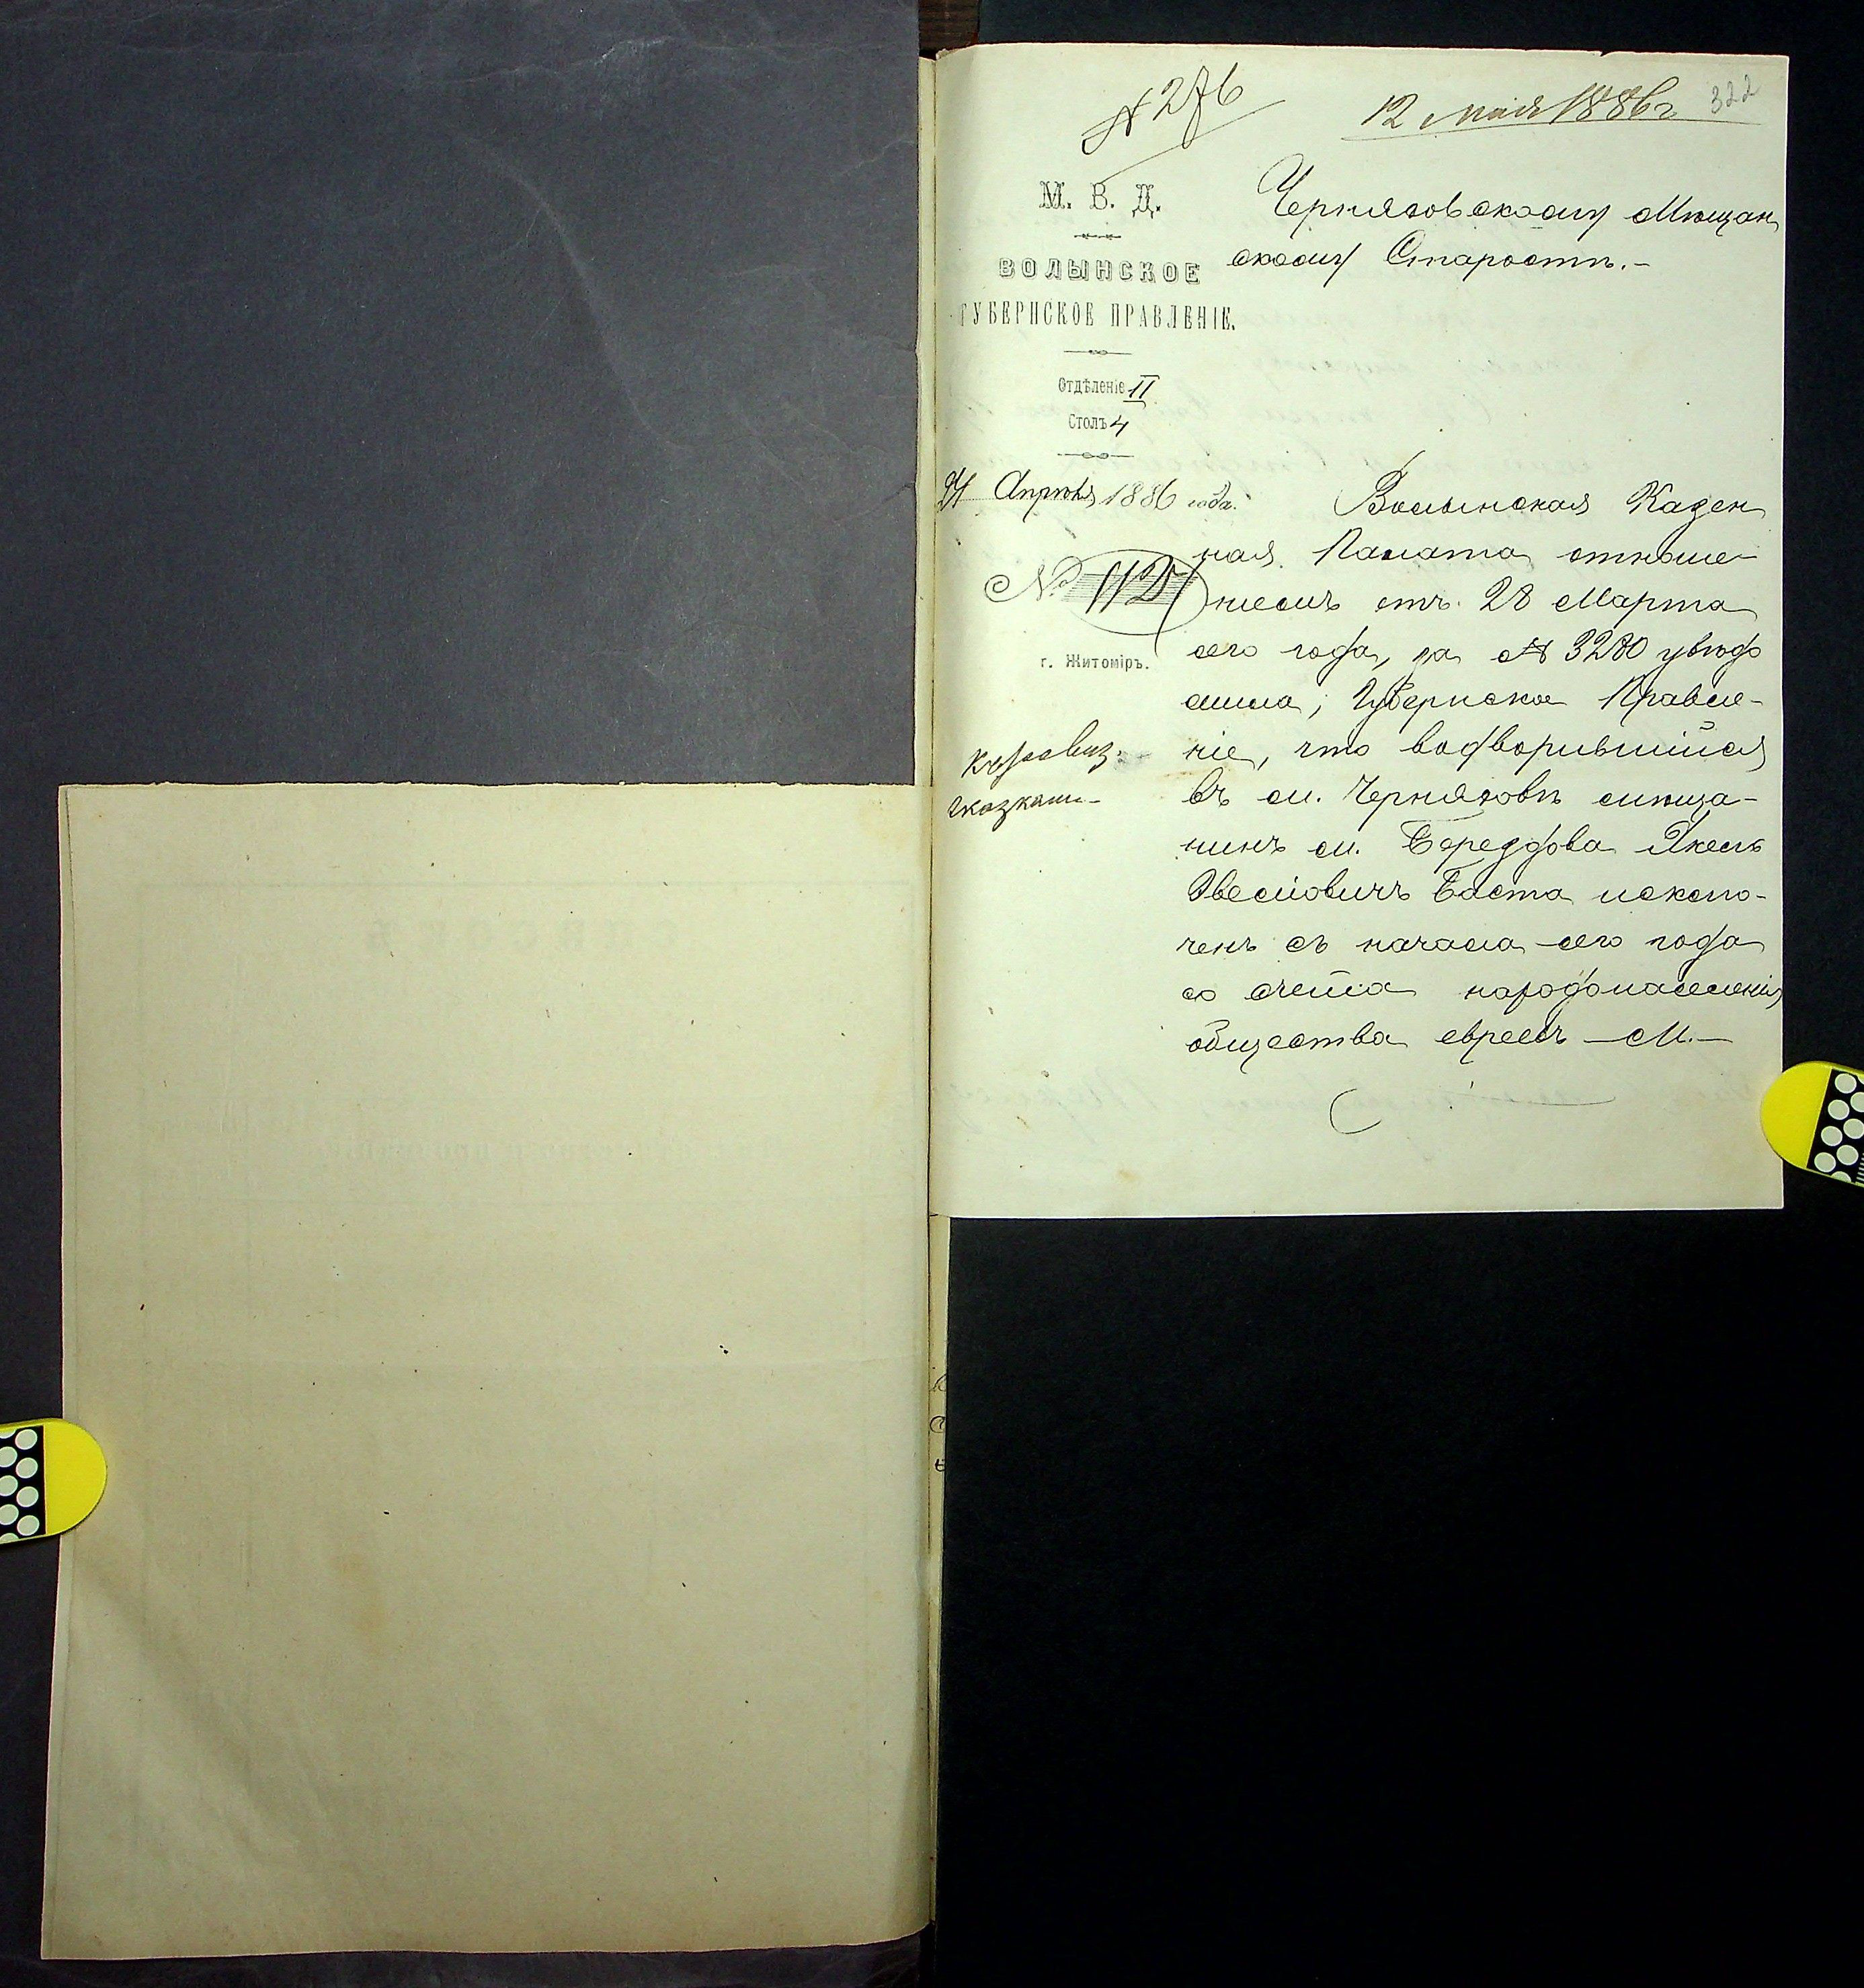 № 276
12 мая 1886 г
322
М. В. Д.
ВОЛЫНСКОЕ
ГУБЕРНСКОЕ ПРАВЛЕНІЕ.
Отдѣленіе II
Столъ 4
Апрѣля 1886 года.
№
г. Житоміръ.
сказкам
Черняховскому Мѣщан
скому Старостѣ.-
Волынская Казен
ная Палата отноше-
ніемъ отъ 28 Марта
сего года, за № 3280 увѣдо
мила, Губернское Правле-
ніе, что водворившійся
въ м. Черняховѣ мѣща-
нинъ м. Берездова
Баста исклю-
ченъ съ начала сего года
со счета народонаселенія
общества евреевъ М.